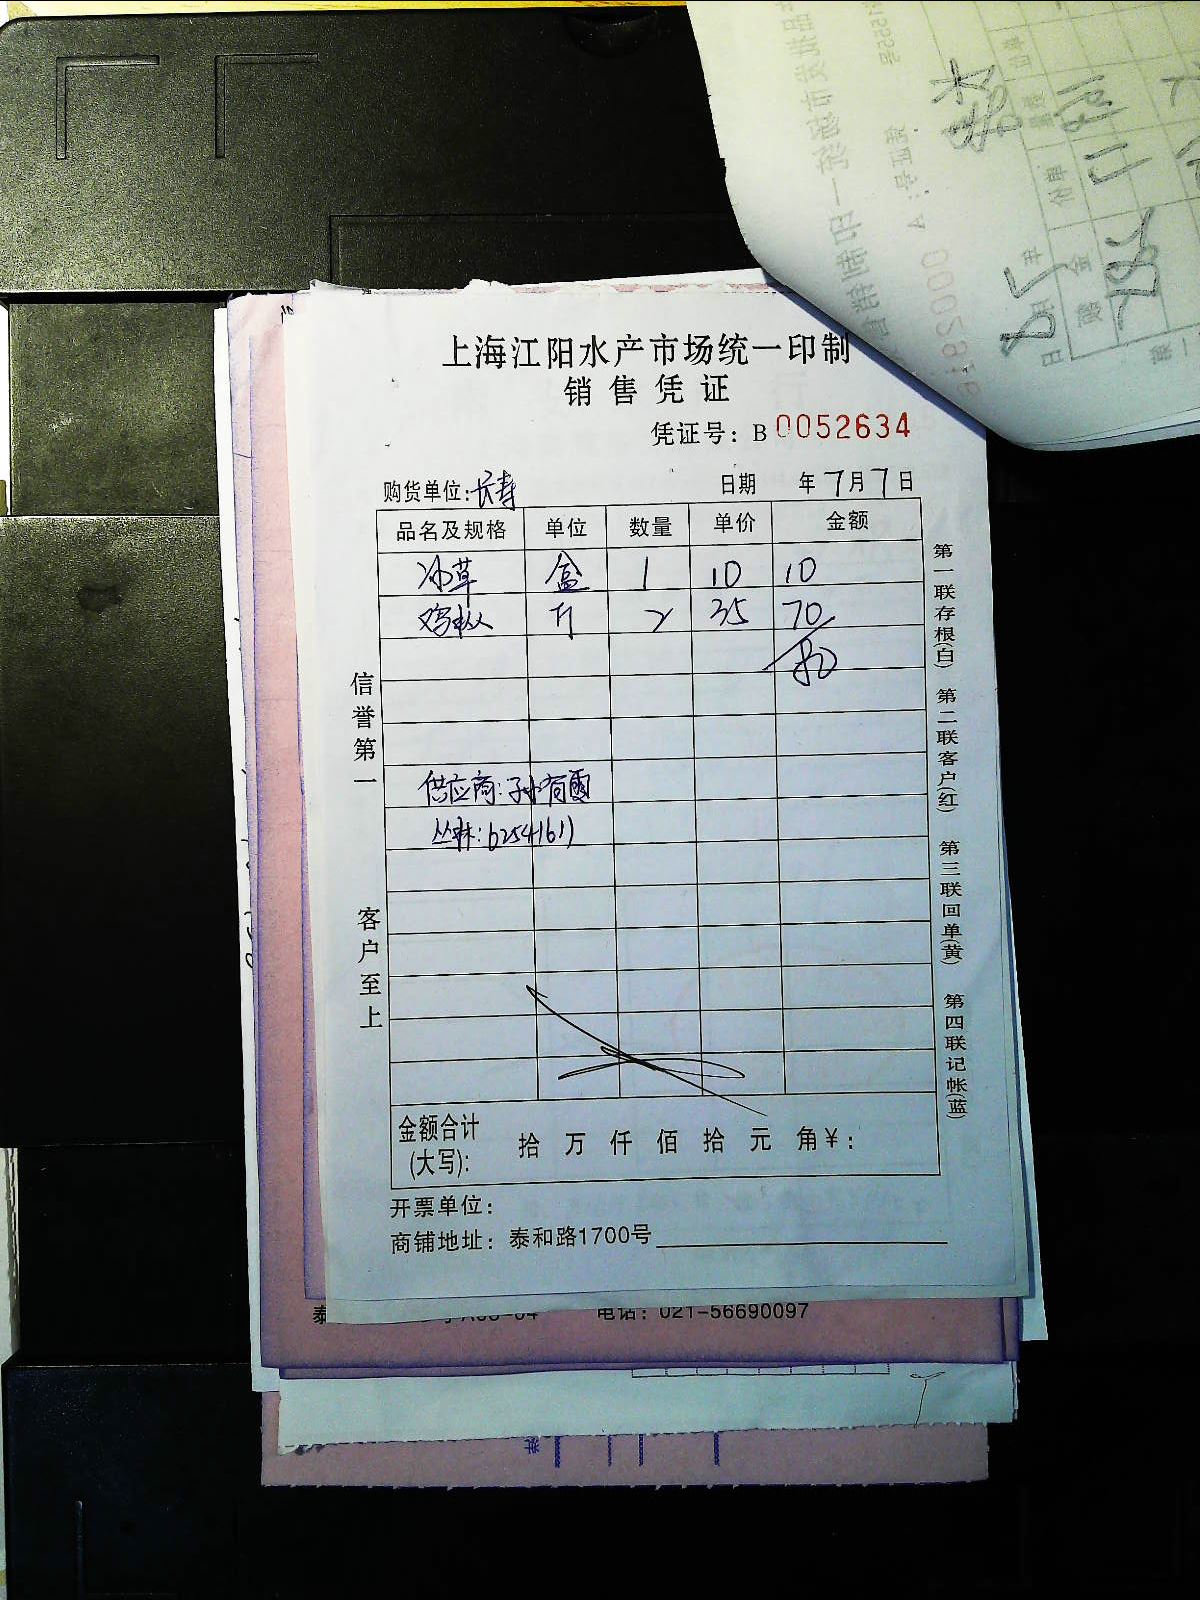 上海江阳水产市场统一印制
销售凭证
凭证号：B 0052634
购货单位:长寿 日期 年7月7日
品名及规格 单位 数量 单价 金额
冰草 盒 1 10 10
鸡枞 斤 2 35 70
80
供应商:孙有霞
丛林:62541611
金额合计(大写): 拾 万 仟 佰 拾 元 角¥:
开票单位：
商铺地址：泰和路1700号
信誉第一 客户至上
第一联存根(白) 第二联客户(红) 第三联回单(黄) 第四联记帐(蓝)
电话：021-56690097